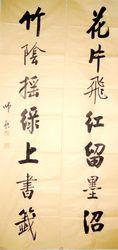 花片飛紅留墨沼
竹陰搖綠上書籤